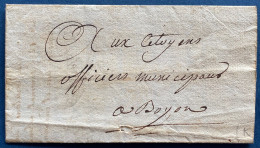 Aux Citoyens
officiers municipaux
a Boyon